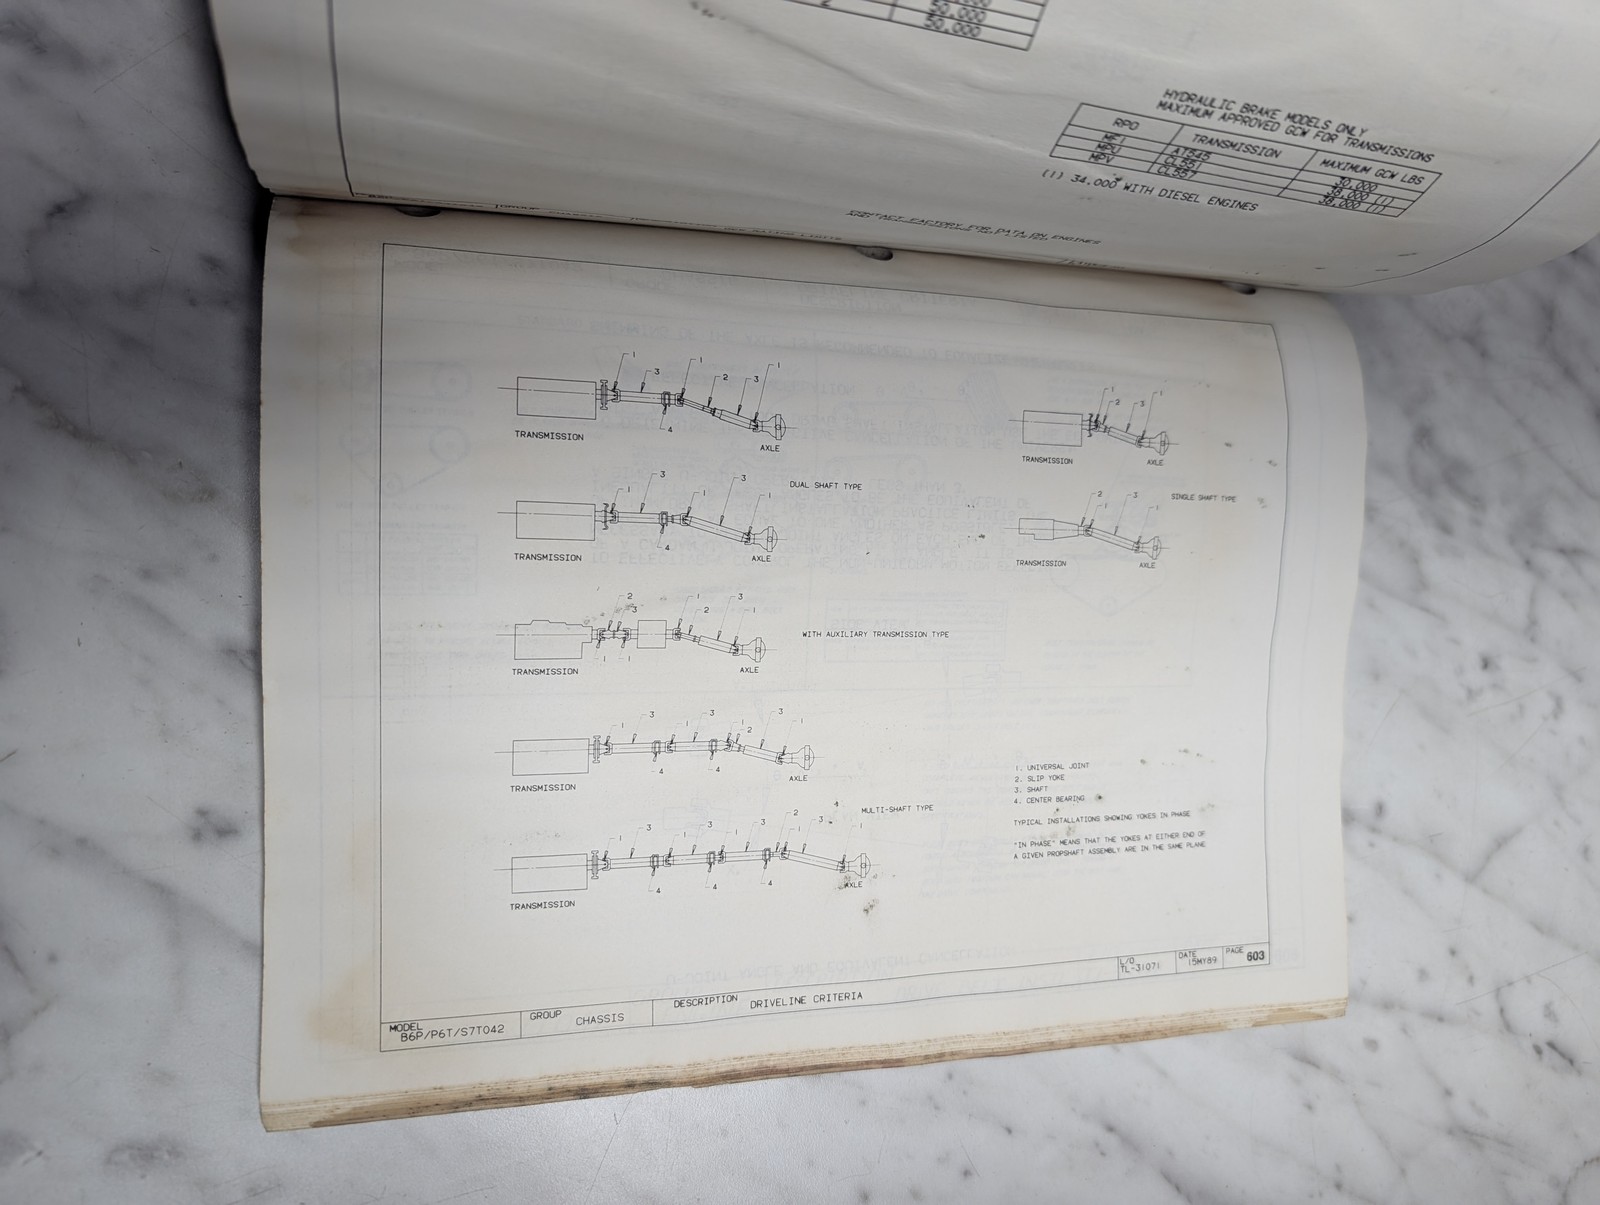 50,000
50,000
HYDRAULIC BRAKE MODELS ONLY
MAXIMUM APPROVED GCW FOR TRANSMISSIONS
RPO TRANSMISSION MAXIMUM GCW LBS
AT545 30,000
MPU CL551 38,000 (1)
MPV CL557 38,000 (1)
(1) 34,000 WITH DIESEL ENGINES
CONTACT FACTORY FOR DATA ON ENGINES
1 3 1 2 3 1
4
TRANSMISSION AXLE
1 2 3 1
TRANSMISSION AXLE
DUAL SHAFT TYPE
1 3 1 3 1
4
TRANSMISSION AXLE
SINGLE SHAFT TYPE
2 1 3 1
TRANSMISSION AXLE
2 3 1 2 3 1
1 1
TRANSMISSION AXLE
WITH AUXILIARY TRANSMISSION TYPE
1 3 1 3 1 2 3 1
4 4
TRANSMISSION AXLE
MULTI-SHAFT TYPE
1 3 1 3 1 3 1 2 3 1
4 4 4
TRANSMISSION AXLE
1. UNIVERSAL JOINT
2. SLIP YOKE
3. SHAFT
4. CENTER BEARING
TYPICAL INSTALLATIONS SHOWING YOKES IN PHASE
"IN PHASE" MEANS THAT THE YOKES AT EITHER END OF
A GIVEN PROPSHAFT ASSEMBLY ARE IN THE SAME PLANE
MODEL B6P/P6T/S7T042
GROUP CHASSIS
DESCRIPTION DRIVELINE CRITERIA
L/O TL-31071
DATE 15MY89
PAGE 603